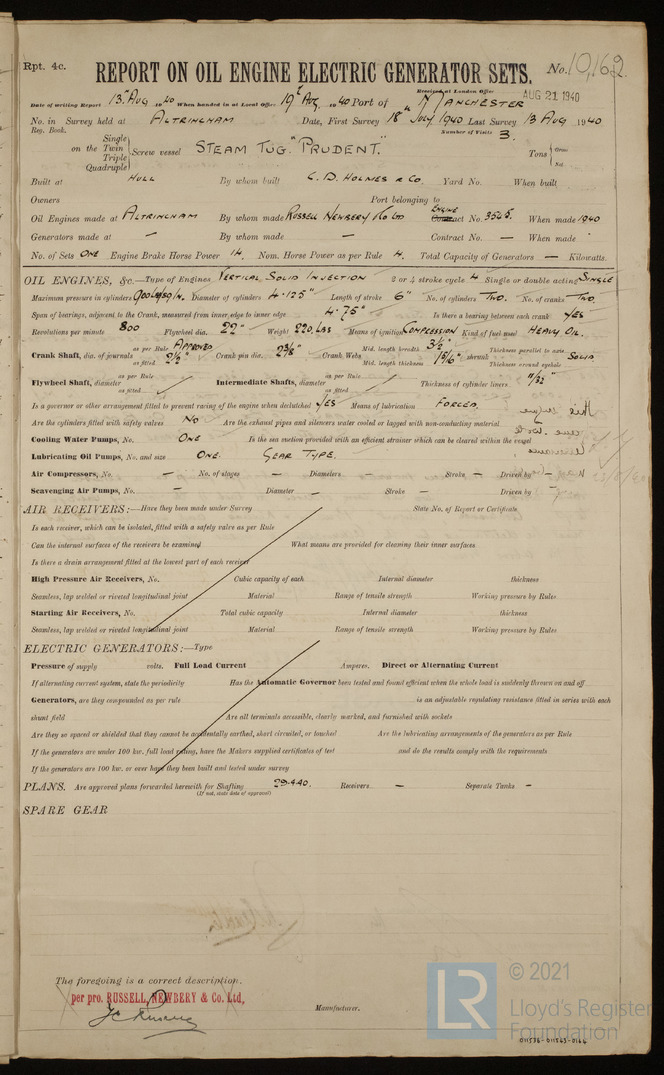 Rpt. 4c.
REPORT ON OIL ENGINE ELECTRIC GENERATOR SETS.
No. 10,162.
Received at London Office AUG 21 1940
Date of writing Report 13th Aug 1940 When handed in at Local Office 19th Aug 1940 Port of MANCHESTER
No. in Survey held at ALTRINCHAM Date, First Survey 18th July 1940 Last Survey 13 AUG 1940
Reg. Book. Number of Visits 3.
Single
on the Twin
Triple
Quadruple
Screw vessel STEAM TUG. "PRUDENT."
Tons Gross
Net
Built at HULL By whom built C. D. HOLMES & CO. Yard No. When built
Owners Port belonging to
Oil Engines made at ALTRINCHAM By whom made RUSSELL NEWBERY & CO LTD ENGINE Contract No. 3545. When made 1940
Generators made at — By whom made — Contract No. — When made
No. of Sets ONE Engine Brake Horse Power 14. Nom. Horse Power as per Rule 4. Total Capacity of Generators — Kilowatts.
OIL ENGINES, &c.—Type of Engines VERTICAL SOLID INJECTION 2 or 4 stroke cycle 4 Single or double acting SINGLE
Maximum pressure in cylinders 900 LBS/SQ IN. Diameter of cylinders 4.125" Length of stroke 6" No. of cylinders TWO. No. of cranks TWO.
Span of bearings, adjacent to the Crank, measured from inner edge to inner edge 4.75" Is there a bearing between each crank YES
Revolutions per minute 800 Flywheel dia. 22" Weight 220 LBS Means of ignition COMPRESSION Kind of fuel used HEAVY OIL.
Crank Shaft, dia. of journals as per Rule APPROVED as fitted 2½" Crank pin dia. 2⅜" Crank Webs Mid. length breadth 3½" Mid. length thickness 15/16" shrunk Thickness parallel to axis SOLID Thickness around eyehole
Flywheel Shaft, diameter as per Rule as fitted Intermediate Shafts, diameter as per Rule as fitted Thickness of cylinder liners 11/32"
Is a governor or other arrangement fitted to prevent racing of the engine when declutched YES Means of lubrication FORCED.
Are the cylinders fitted with safety valves NO Are the exhaust pipes and silencers water cooled or lagged with non-conducting material
Cooling Water Pumps, No. ONE Is the sea suction provided with an efficient strainer which can be cleared within the vessel
Lubricating Oil Pumps, No. and size ONE. GEAR TYPE.
Air Compressors, No. — No. of stages — Diameters — Stroke — Driven by —
Scavenging Air Pumps, No. — Diameter — Stroke — Driven by —
AIR RECEIVERS:—Have they been made under Survey State No. of Report or Certificate
Is each receiver, which can be isolated, fitted with a safety valve as per Rule
Can the internal surfaces of the receivers be examined What means are provided for cleaning their inner surfaces
Is there a drain arrangement fitted at the lowest part of each receiver
High Pressure Air Receivers, No. Cubic capacity of each Internal diameter thickness
Seamless, lap welded or riveted longitudinal joint Material Range of tensile strength Working pressure by Rules
Starting Air Receivers, No. Total cubic capacity Internal diameter thickness
Seamless, lap welded or riveted longitudinal joint Material Range of tensile strength Working pressure by Rules
ELECTRIC GENERATORS:—Type
Pressure of supply volts. Full Load Current Amperes. Direct or Alternating Current
If alternating current system, state the periodicity Has the Automatic Governor been tested and found efficient when the whole load is suddenly thrown on and off
Generators, are they compounded as per rule is an adjustable regulating resistance fitted in series with each
shunt field Are all terminals accessible, clearly marked, and furnished with sockets
Are they so spaced or shielded that they cannot be accidentally earthed, short circuited, or touched Are the lubricating arrangements of the generators as per Rule
If the generators are under 100 kw. full load rating, have the Makers supplied certificates of test and do the results comply with the requirements
If the generators are 100 kw. or over have they been built and tested under survey
PLANS. Are approved plans forwarded herewith for Shafting 29.4.40. Receivers — Separate Tanks —
(If not, state date of approval)
SPARE GEAR
The foregoing is a correct description,
per pro. RUSSELL, NEWBERY & Co. Ltd,
Manufacturer.
LR
© 2021
Lloyd's Register
Foundation
011536-011543-0166